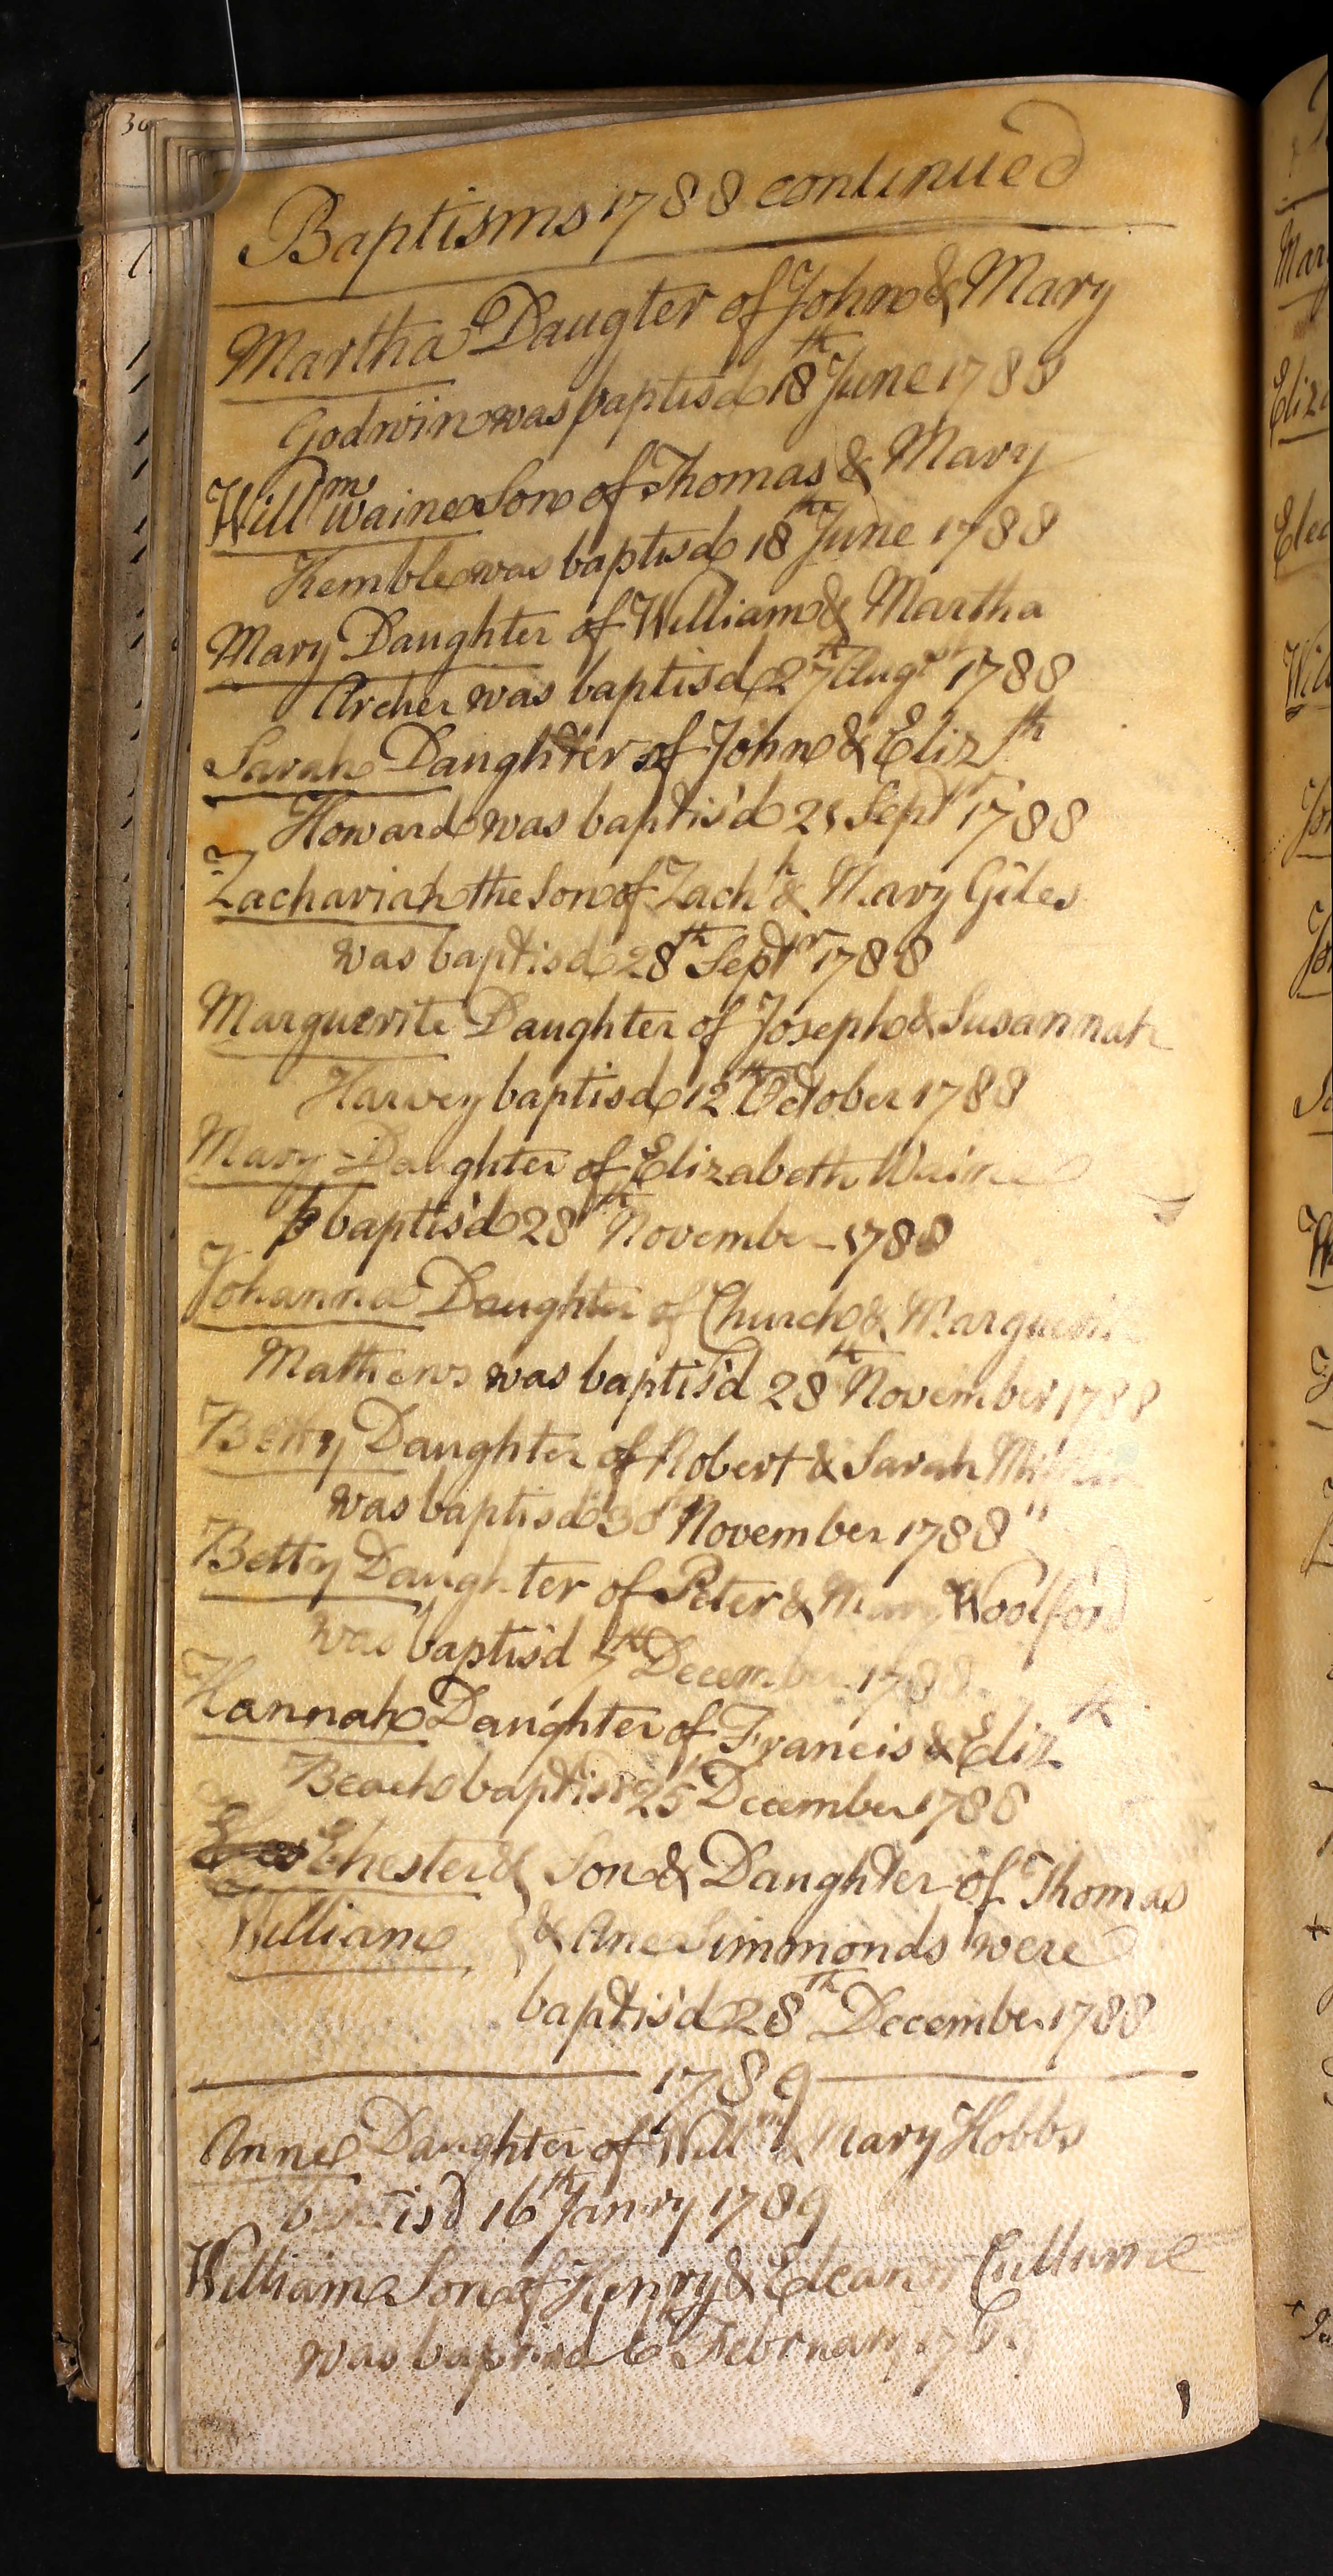 30
Baptisms 1788 continued
Martha Daugter of John & Mary
Godwin was baptisd 18th June 1788
Willm waine Son of Thomas & Mary
Kemble was baptisd 18th June 1788
Mary Daughter of William & Martha
Archer was baptisd 27th Augst 1788
Sarah Daughter of John & Elizth
Howard was baptis'd 21 Septr 1788
Zachariah the Son of Zachh & Mary Giles
was baptisd 28th Septr 1788
Marguerite Daughter of Joseph & Susannah
Harvey baptisd 12th October 1788
Mary Daughter of Elizabeth Waine
baptis'd 28th November 1788
Johanna Daughter of Church & Marguerite
Mathews was baptis'd 28th November 1788
Betty Daughter of Robert & Sarah
was baptisd 30th November 1788
Betty Daughter of Peter & Mary Woolford
was baptis'd 7th December 1788
Hannah Daughter of Francis & Elizth
Beach baptisd 25th December 1788
Chester & Son & Daughter of Thomas
William & Ane Simmonds were
baptis'd 28th December 1788
1789
Anne Daughter of Willm & Mary Hobbs
baptisd 16th Janry 1789
William Son of Henry & Eleanor Cullurne
was baptisd February